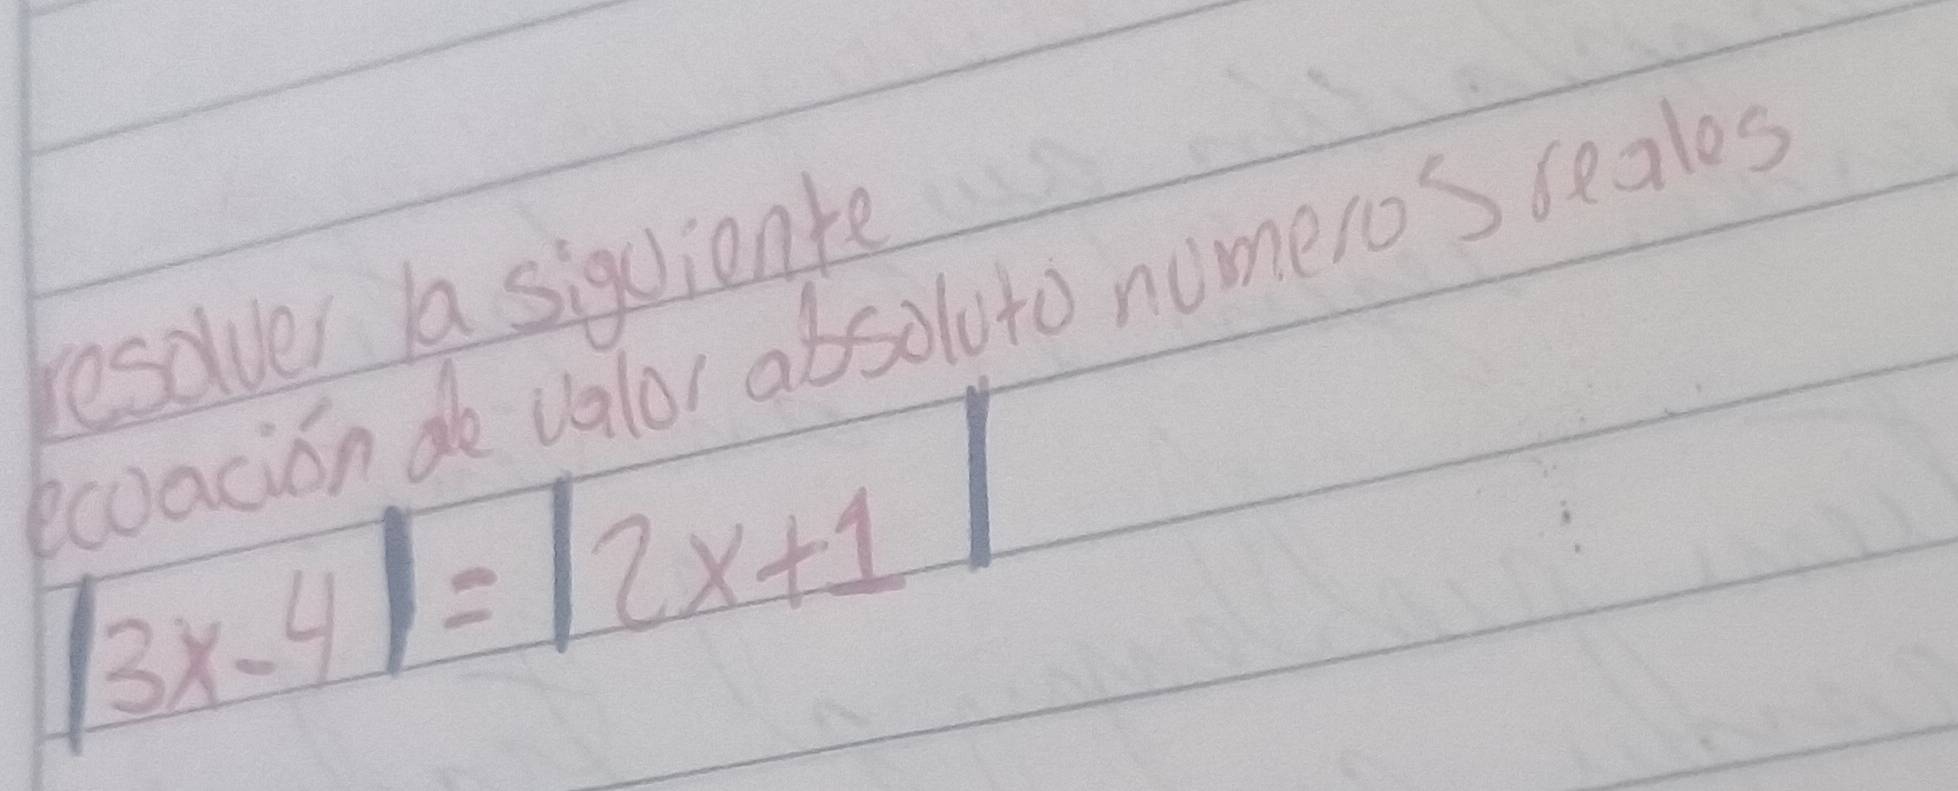 resolver la siguiente
ecuación de valor absoluto numeros reales
|3x-4| = |2x+1|